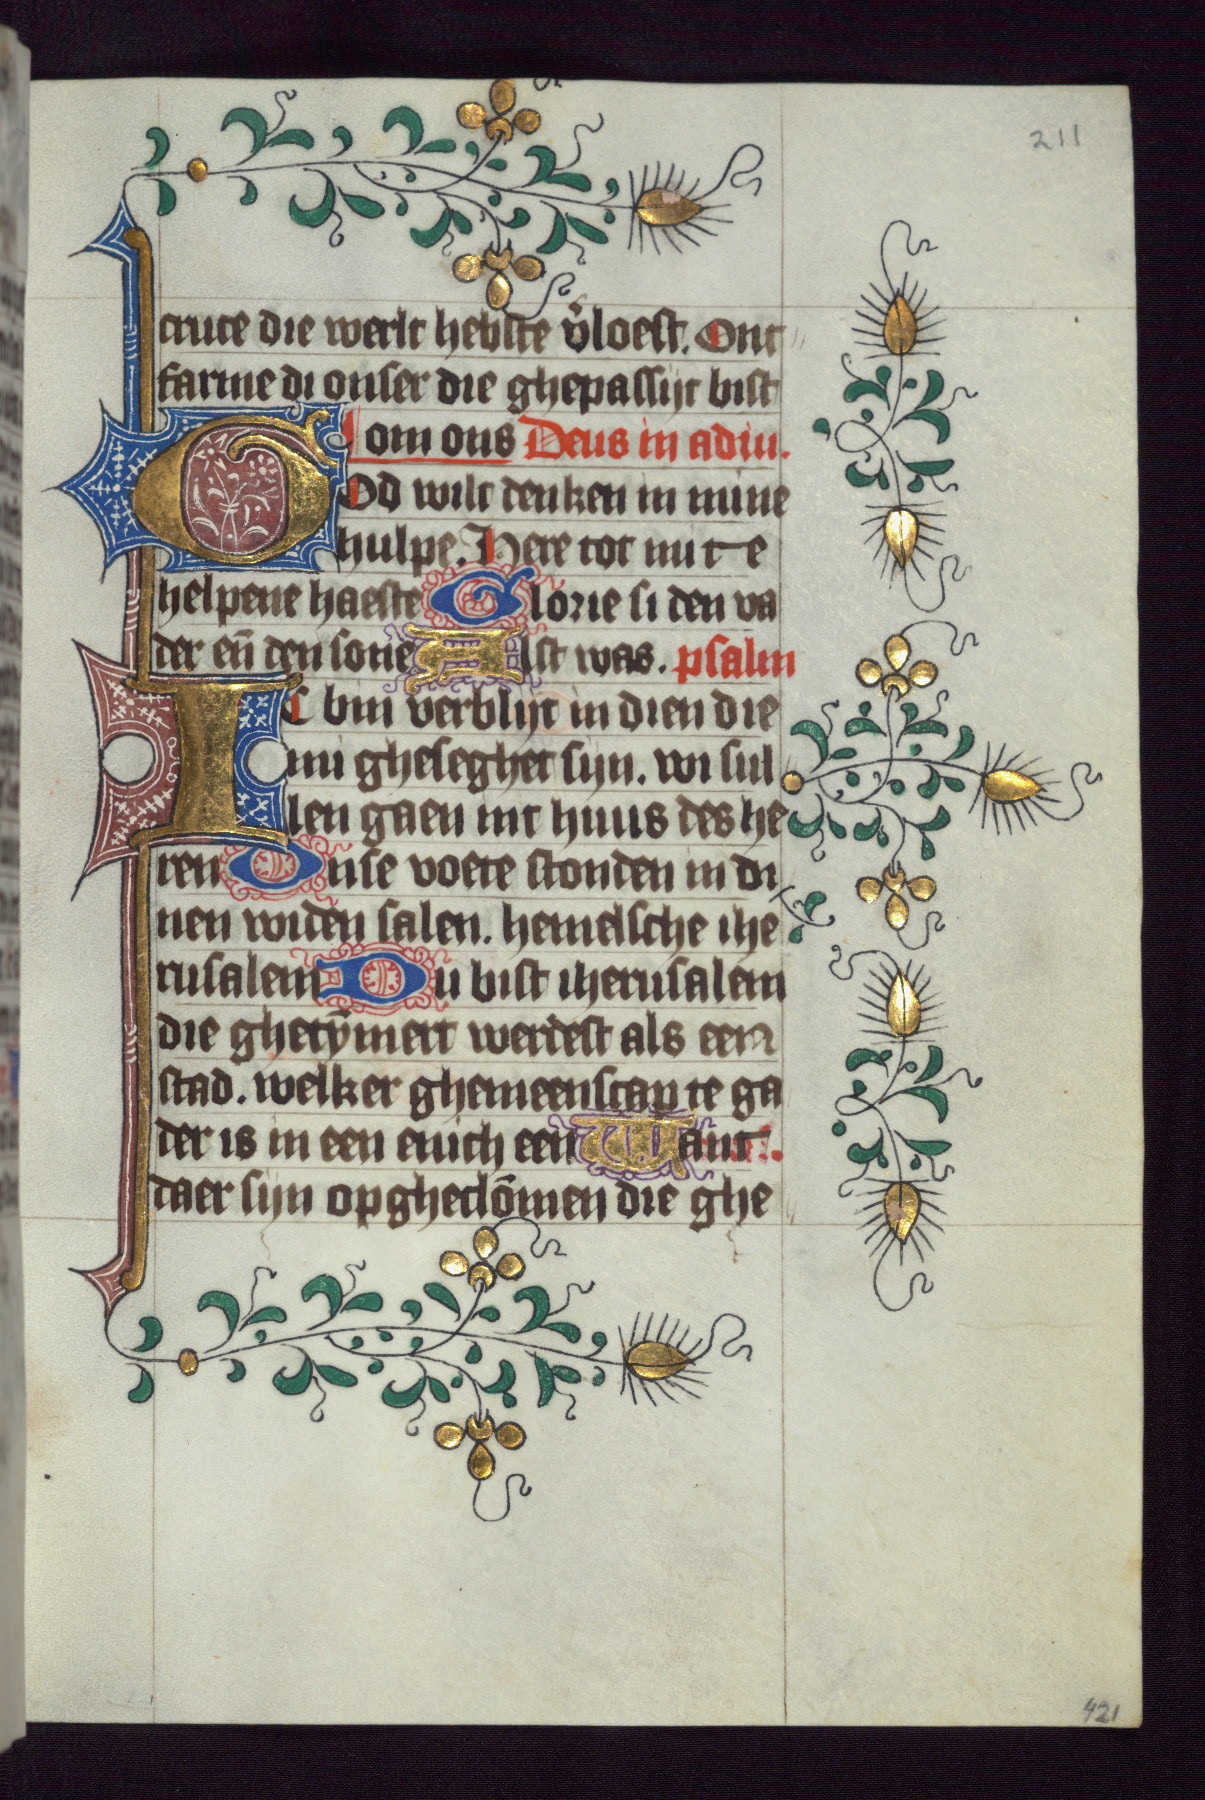 211
cruce die werlt hebste v̄loest. Ont
farme di onser die ghepassijt bist
om ons Deus in adiu.
God wilt denken in mine
hulpe. Here tot mi te
helpene haeste Glorie si den va
der en̄ den sone Alst was. psalm
Ic bin verblijt in dien die
mi gheseghet sijn. wi sul
len gaen int huus des he
ren Onse voete stonden in di
nen widen salen. hemelsche ihe
rusalem Du bist iherusalem
die ghetȳmert werdest als een
stad. welker ghemeenscap te ga
der is in een enich een Want
daer sijn opghecl͞ommen die ghe
421